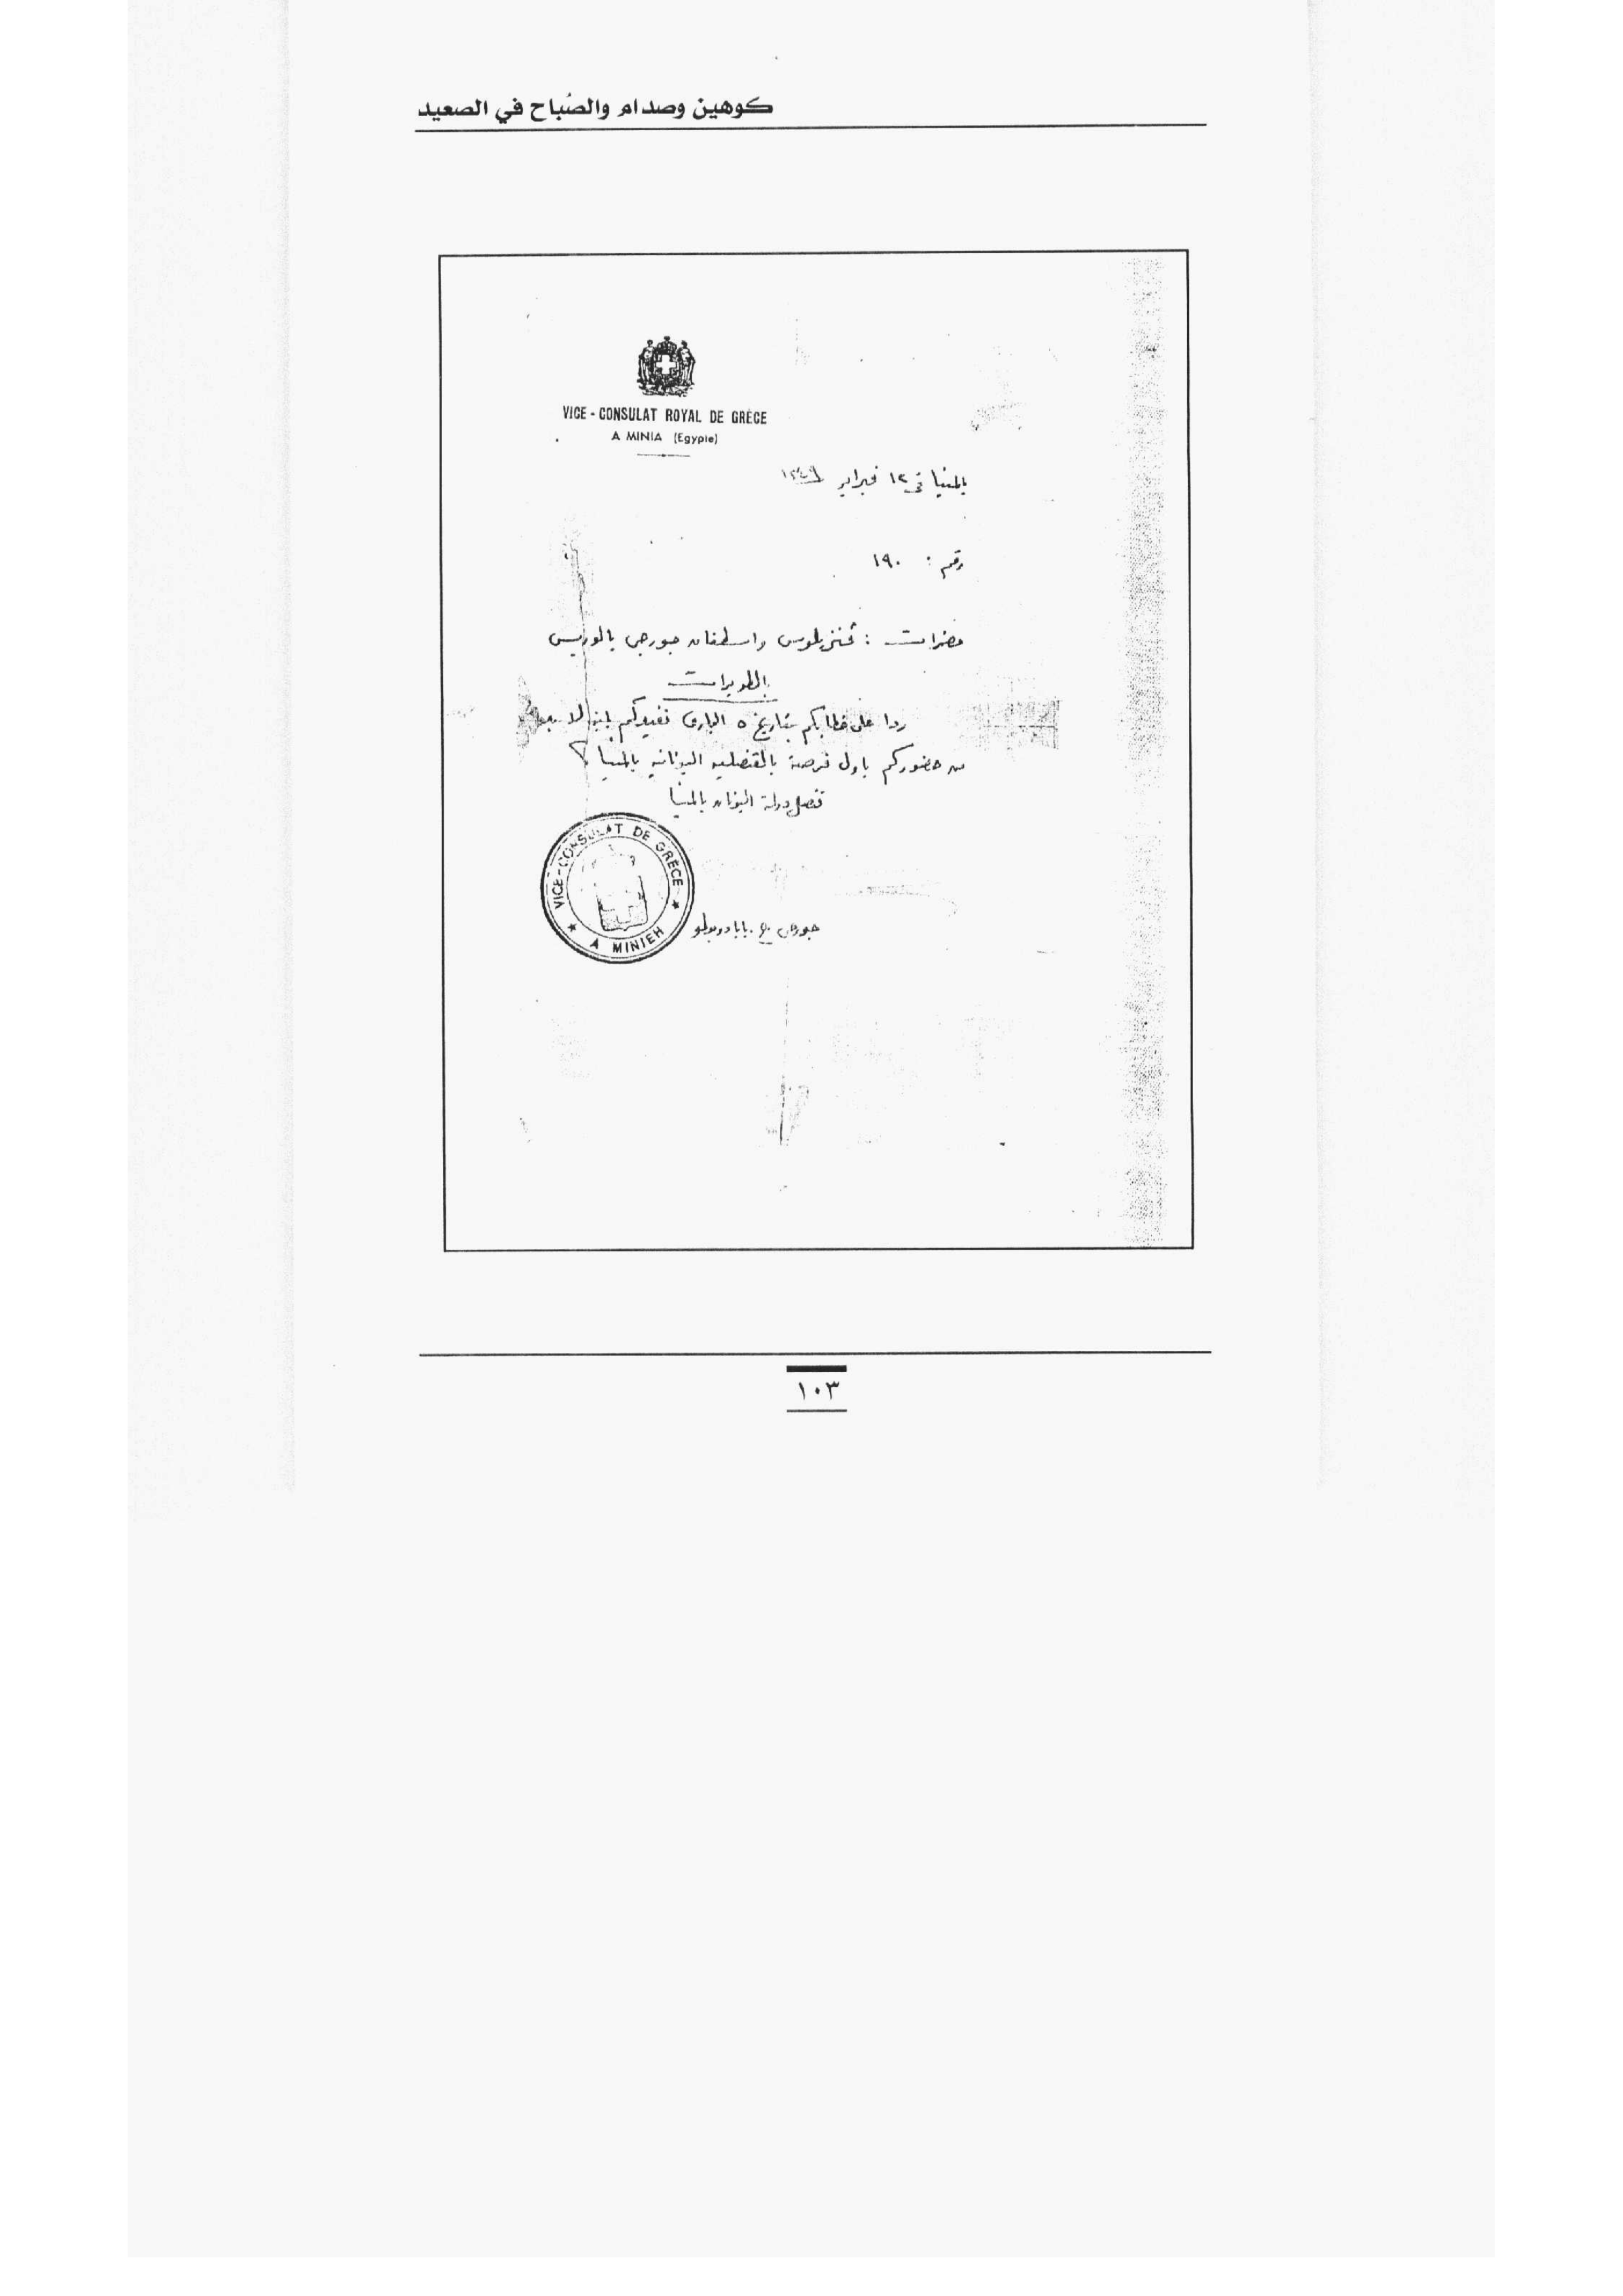 كوهين وصدام والصُباح في الصعيد
VICE - CONSULAT ROYAL DE GRÈCE
A MINIA (Egypte)
بالمنيا في ١٢ فبراير
رقم : ١٩٠
حضرات : واسطفان جورجى بالوريس
الطويرات
ردا على خطابكم بتاريخ ٥ الجارى نفيدكم بانه لا بد
من حضوركم باول فرصة بالقنصليه اليونانيه بالمنيا
قنصل دولة اليونان بالمنيا
VICE-CONSULAT DE GRÈCE
A MINIEH
جورجى بابادوبولو
١٠٣